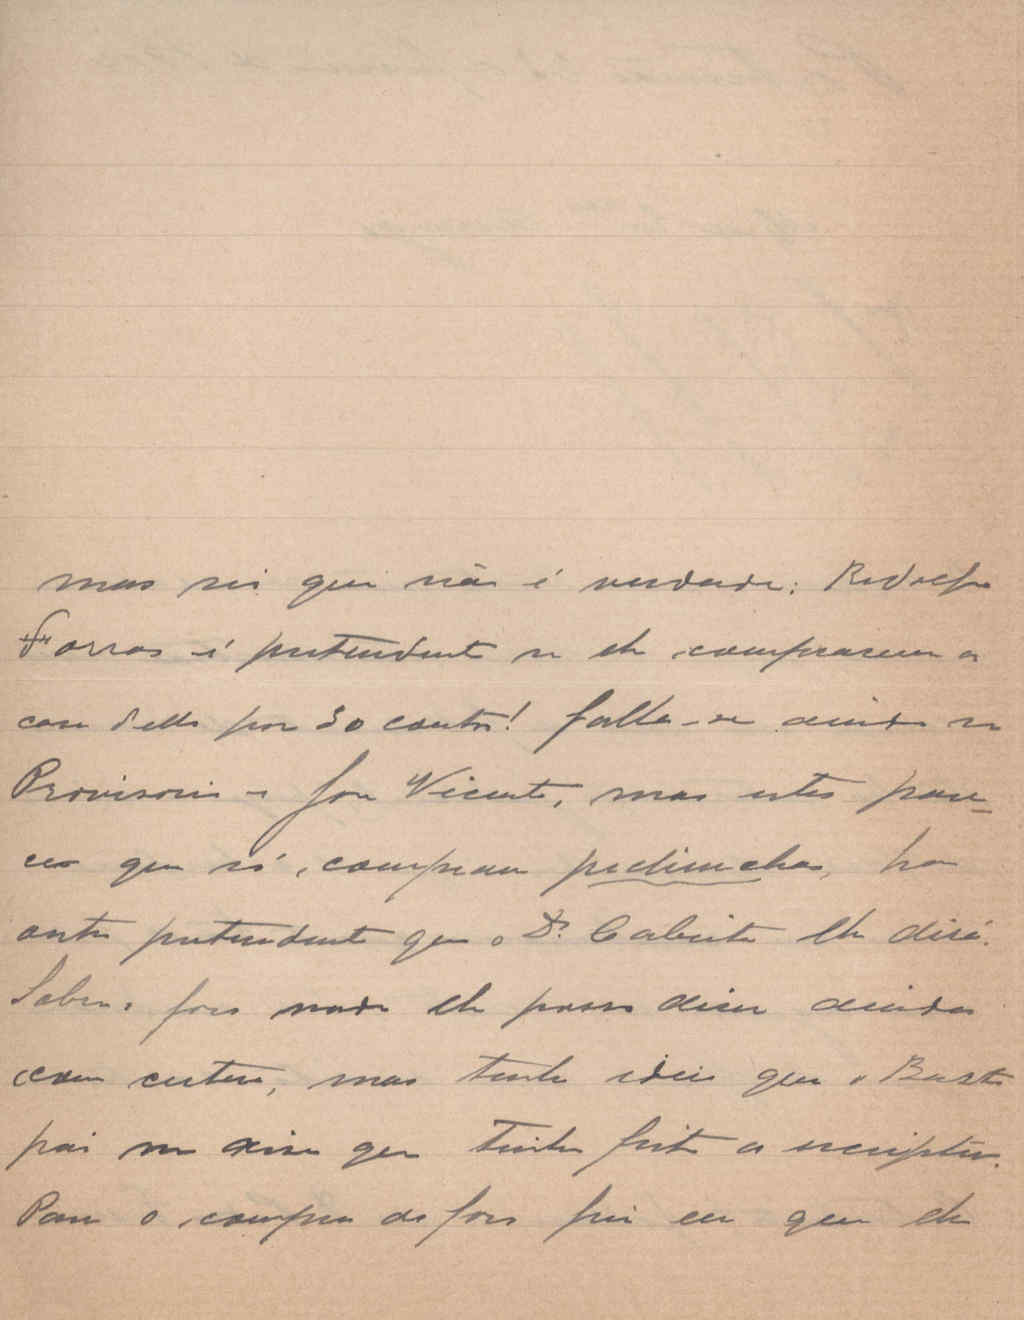 mas sei que não é verdade: Rodolfo
Torres é pretendente se lhe comprarem a
casa d'elle por 30 contos! falla-se ainda no
Provisorio e Jou Vicente, mas estes pare-
ceo que só compram pechinchas, ha
outro pretendente que o Dr. Calixto lhe dirá.
Sabino, pois nada lhe posso dizer ainda
com certeza, mas tenho ideia que o Basto
pai me disse que tinha feito a escriptura.
Para o compra da foros fui eu que lhe